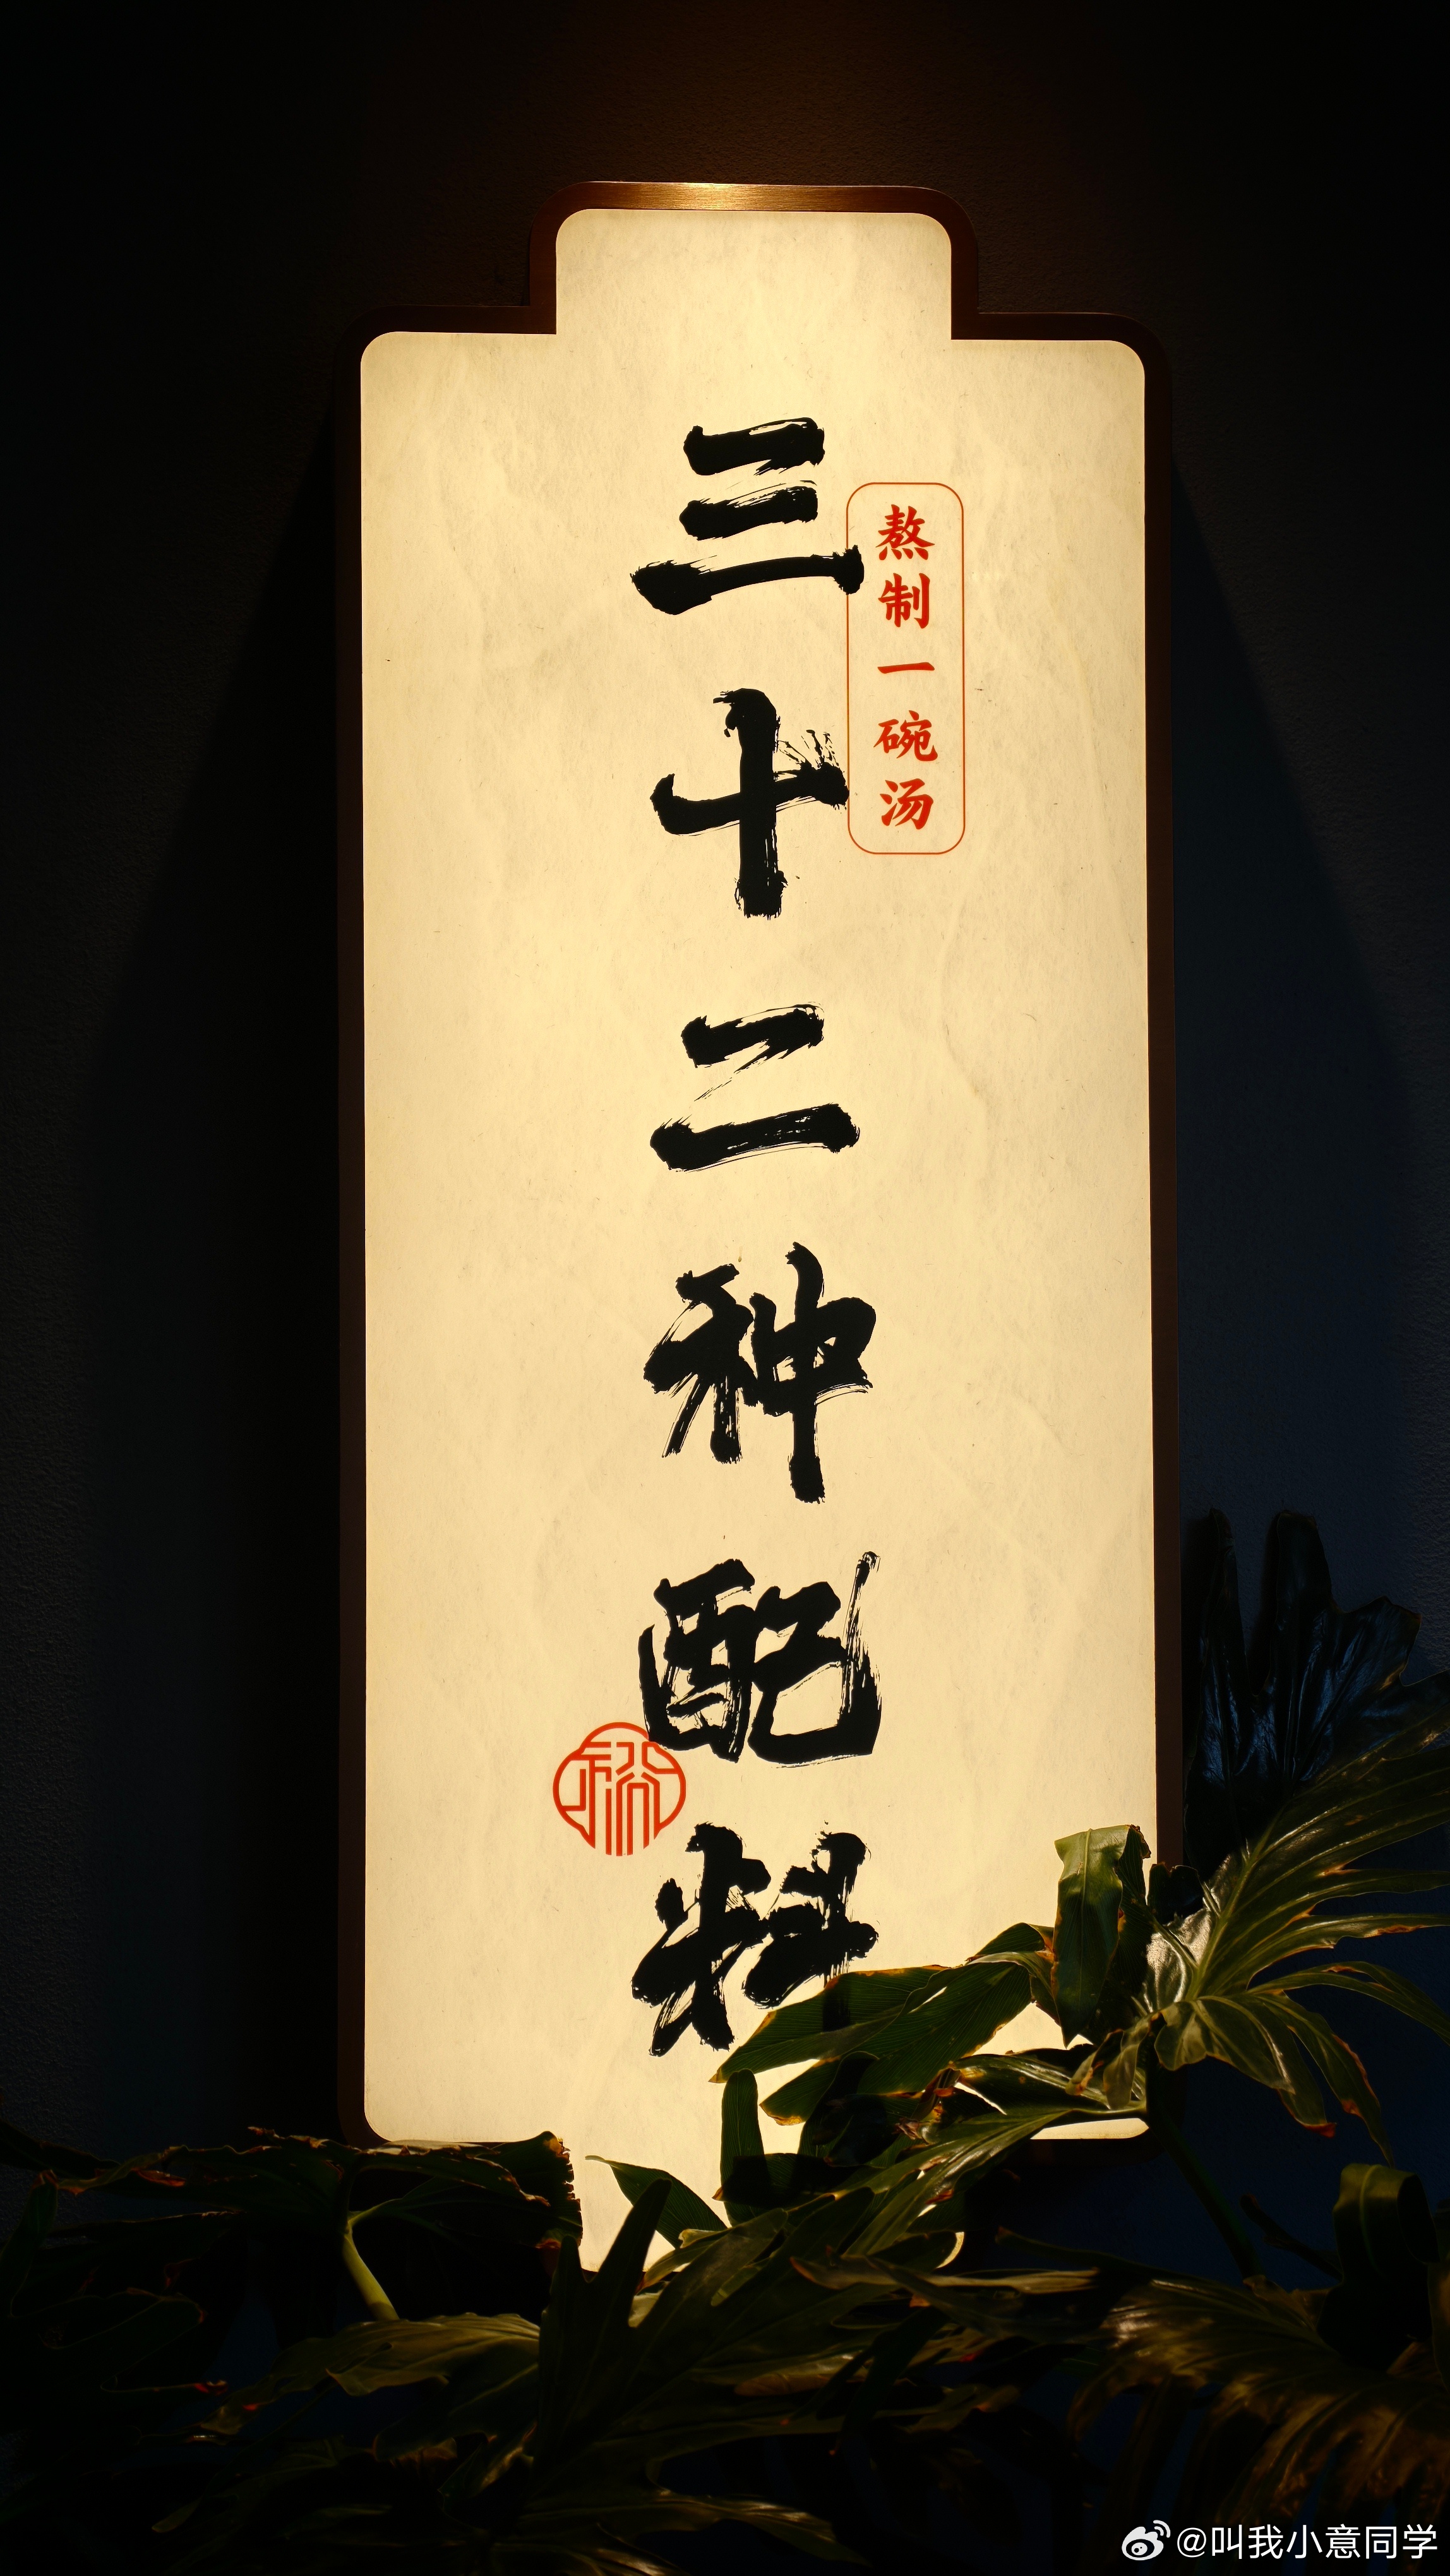 熬制一碗汤
三十二种配料
@叫我小意同学